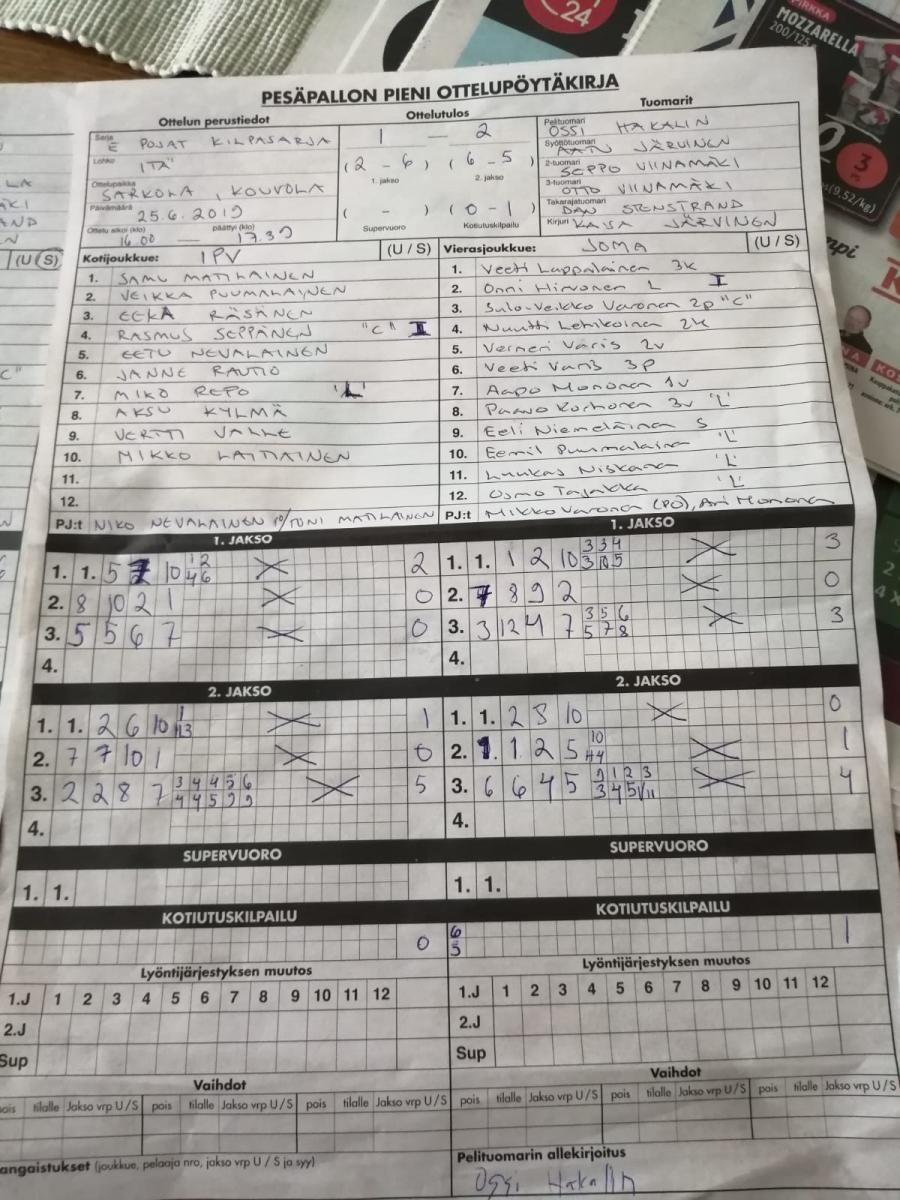 24
PIRKKA
MOZZARELLA
200/125
3
(9.52/kg)
PESÄPALLON PIENI OTTELUPÖYTÄKIRJA
Ottelun perustiedot
Ottelutulos
Tuomarit
Sarja E POJAT KILPASARJA
1 — 2
Pelituomari OSSI HAKALIN
Lohko ITÄ
(2 - 6) (6 - 5)
Syöttötuomari JÄRVINEN
1. jakso 2. jakso
2-tuomari SEPPO VIINAMÄKI
Ottelupaikka SARKOLA, KOUVOLA
3-tuomari OTTO VIINAMÄKI
Päivämäärä 25.6.2019
( - ) (0 - 1)
Takarajatuomari DAN STENSTRAND
Ottelu alkoi (klo) 16.00 — päättyi (klo) 17.39
Supervuoro Kotiutuskilpailu
Kirjuri KAISA JÄRVINEN
Kotijoukkue: IPV (U / S)
Vierasjoukkue: JOMA (U / S)
1. SAMU MATILAINEN
2. VEIKKA PUUMALAINEN
3. EEKA RÄSÄNEN
4. RASMUS SEPPÄNEN "C" II
5. EETU NEVALAINEN
6. JANNE RAUTIO
7. MIKO REPO 'L'
8. AKSU KYLMÄ
9. VERTTI
10. MIKKO LAITIAINEN
11.
12.
PJ:t NIKO NEVALAINEN / TONI MATILAINEN
1. Veeti Lappalainen 3k
2. Onni Hirvonen L I
3. Sulo-Veikko Varonen 2p "C"
4. Nuutti Lehikoinen 2k
5. Verneri Varis 2v
6. Veeti Varis 3p
7. Aapo Mononen 1v
8. Paavo Korhonen 3v 'L'
9. Eeli Niemeläinen S
10. Eemil Puumalainen 'L'
11. Luukas Niskanen 'L'
12. Osmo 'L'
PJ:t Mikko Varonen (PJ), Ari Mononen
1. JAKSO
1. 1. 5 7 10 1 2 2
4 6
2. 8 10 2 1 0
3. 5 5 6 7 0
4.
1. JAKSO
1. 1. 1 2 10 3 3 4 3
3 10 5
2. 7 8 9 2 0
3. 3 12 4 7 3 5 6 3
5 7 8
4.
2. JAKSO
1. 1. 2 6 10 1 1
13
2. 7 7 10 1 0
3. 2 2 8 7 3 4 4 5 6 5
4 4 5 9 9
4.
2. JAKSO
1. 1. 2 8 10 0
2. 1. 1. 2 5 10 1
4
3. 6 6 4 5 9 1 2 3 4
3 4 5 11
4.
SUPERVUORO
1. 1.
SUPERVUORO
1. 1.
KOTIUTUSKILPAILU
0
KOTIUTUSKILPAILU
6 1
5
Lyöntijärjestyksen muutos
1.J 1 2 3 4 5 6 7 8 9 10 11 12
2.J
Sup
Lyöntijärjestyksen muutos
1.J 1 2 3 4 5 6 7 8 9 10 11 12
2.J
Sup
Vaihdot
pois tilalle Jakso vrp U / S pois tilalle Jakso vrp U / S pois tilalle Jakso vrp U / S
Vaihdot
pois tilalle Jakso vrp U / S pois tilalle Jakso vrp U / S pois tilalle Jakso vrp U / S
angaistukset (joukkue, pelaaja nro, jakso vrp U / S ja syy)
Pelituomarin allekirjoitus
Ossi Hakalin